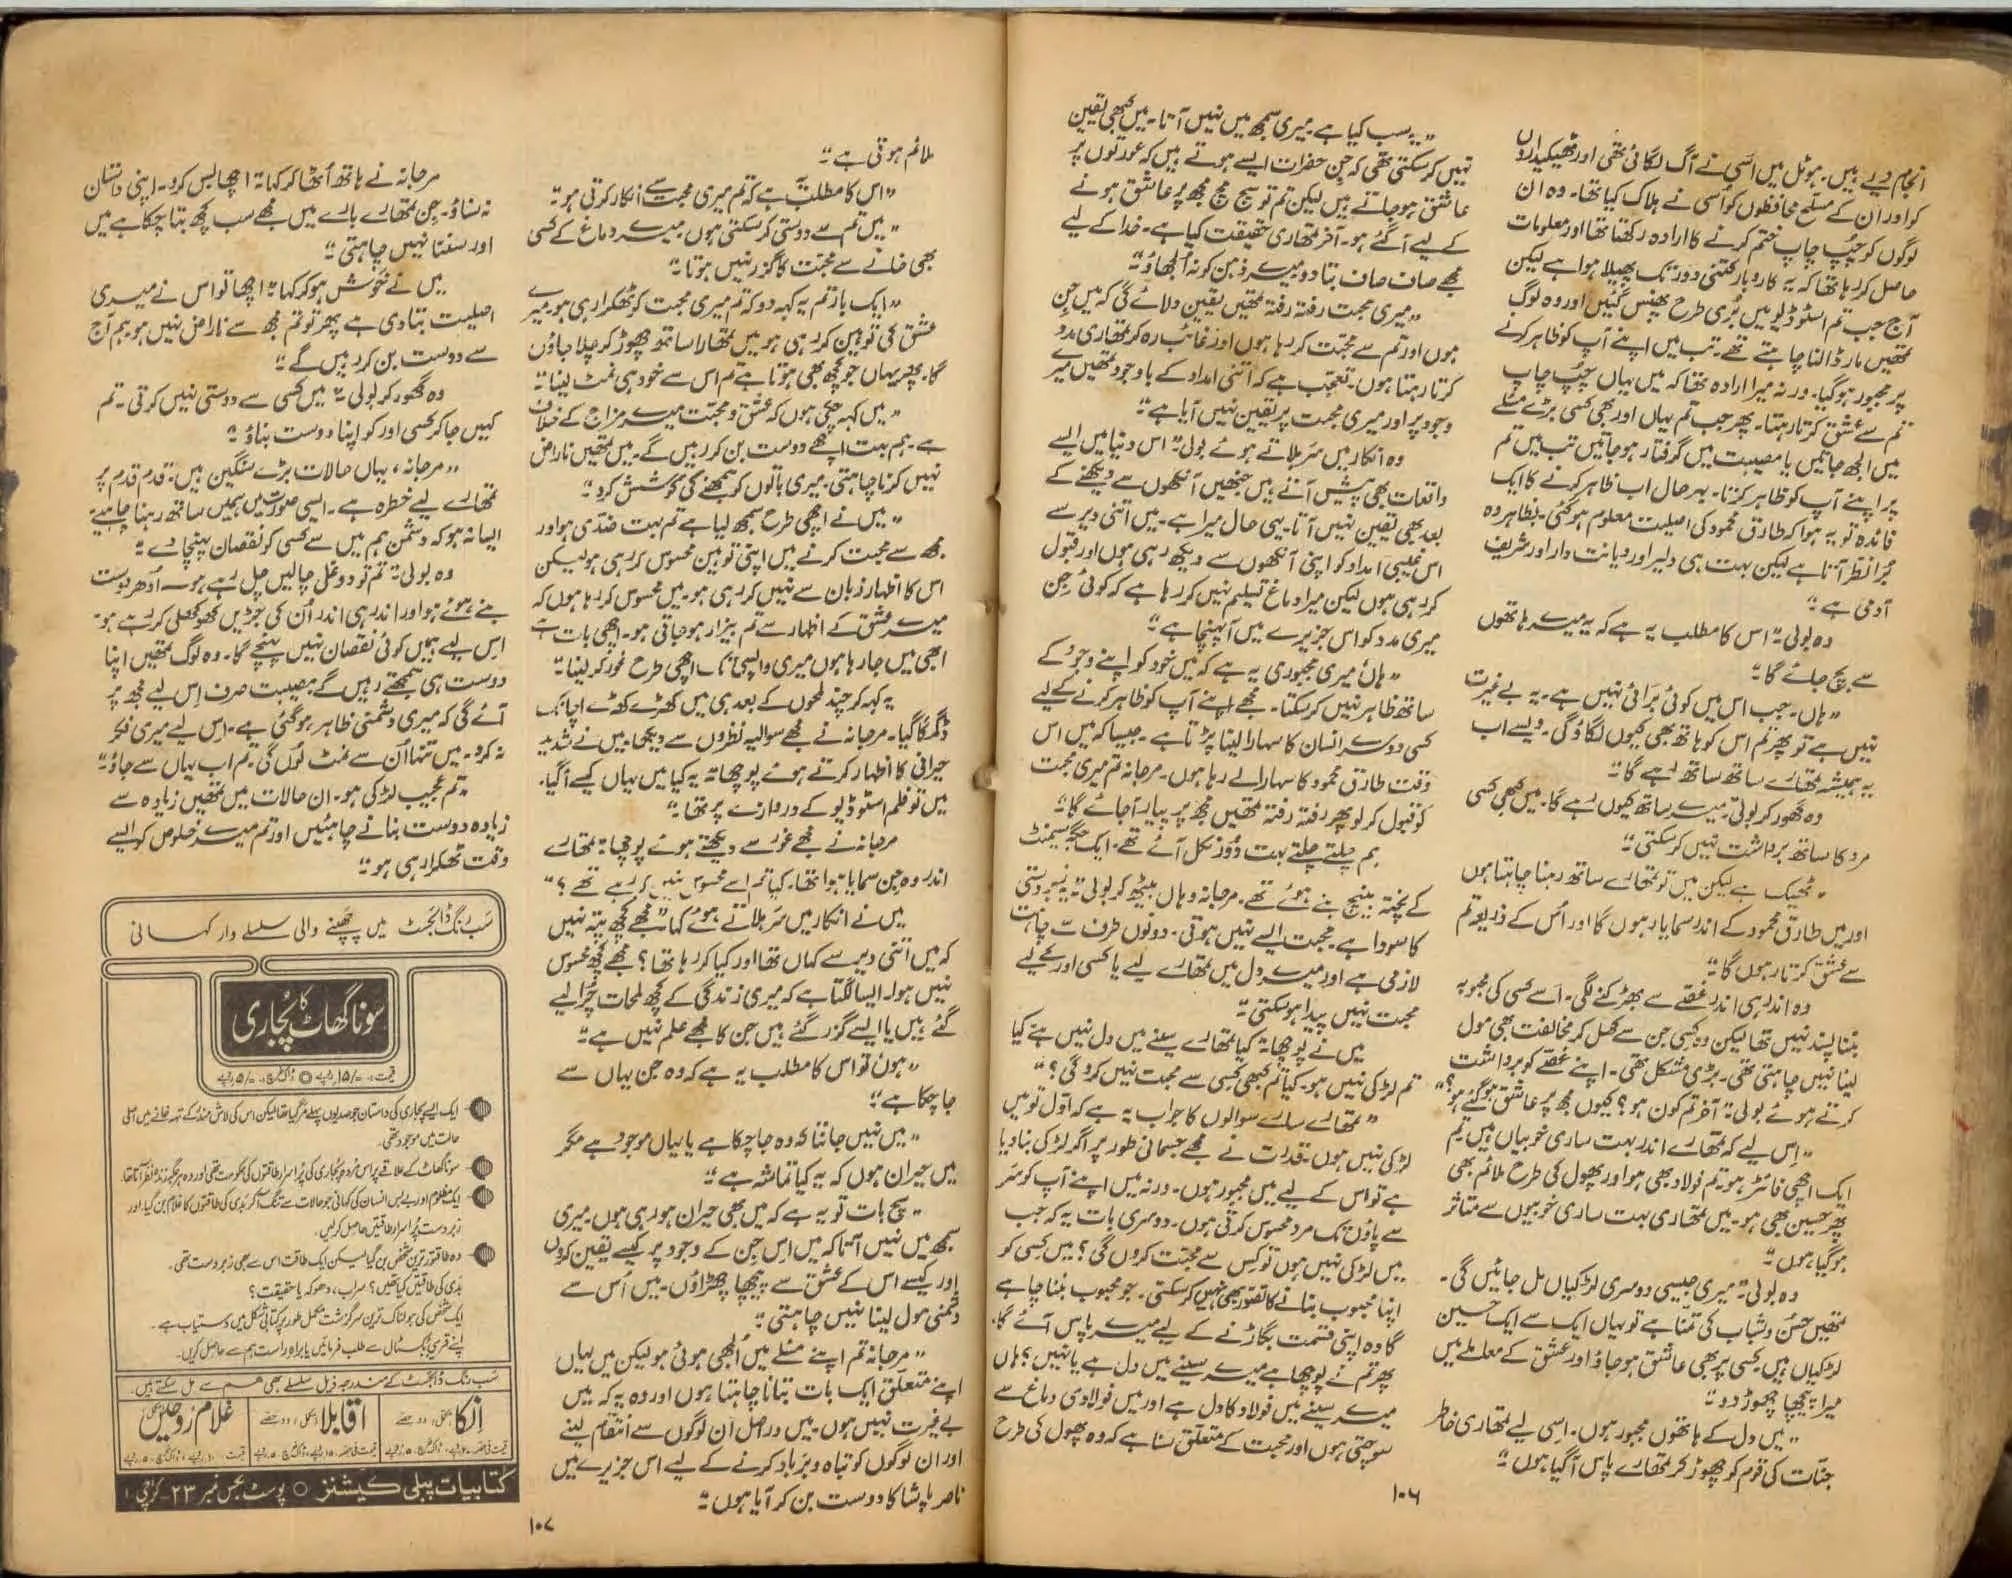 انجام دیے ہیں۔ ہوٹل میں اسی نے آگ لگائی تھی اور ٹھیکیداروں
کو اور ان کے مسلح محافظوں کو اُسی نے ہلاک کیا تھا۔ وہ ان
لوگوں کو چُپ چاپ ختم کرنے کا ارادہ رکھتا تھا اور معلومات
حاصل کر رہا تھا کہ یہ کاروبار کتنی دور تک پھیلا ہوا ہے لیکن
آج جب تم اسٹوڈیو میں بُری طرح پھنس گئیں اور وہ لوگ
تمھیں مار ڈالنا چاہتے تھے۔ تب میں اپنے آپ کو ظاہر کرنے
پر مجبور ہو گیا۔ ورنہ میرا ارادہ تھا کہ میں یہاں چُپ چاپ
تم سے عشق کرتا رہتا۔ پھر جب تم یہاں اور بھی کسی بڑے مسئلے
میں الجھ جاتیں یا مصیبت میں گرفتار ہو جاتیں تب میں تم
پر اپنے آپ کو ظاہر کرتا۔ بہرحال اب ظاہر کرنے کا ایک
فائدہ تو یہ ہوا کہ طارق محمود کی اصلیت معلوم ہو گئی۔ بظاہر وہ
بُرا نظر آتا ہے لیکن بہت ہی دلیر اور دیانت دار اور شریف
آدمی ہے؛"
وہ بولی؛" اس کا مطلب یہ ہے کہ یہ میرے ہاتھوں
سے بچ جائے گا؛"
"ہاں۔ جب اس میں کوئی بُرائی نہیں ہے۔ یہ بے غیرت
نہیں ہے تو پھر تم اس کو ہاتھ بھی کیوں لگاؤ گی۔ ویسے اب
یہ ہمیشہ تمھارے ساتھ ساتھ رہے گا؛"
وہ گھور کر بولی؛" میرے ساتھ کیوں رہے گا۔ میں کبھی کسی
مرد کا ساتھ برداشت نہیں کر سکتی؛"
"ٹھیک ہے لیکن میں تو تمھارے ساتھ رہنا چاہتا ہوں
اور میں طارق محمود کے اندر سمایا رہوں گا اور اُس کے ذریعہ تم
سے عشق کرتا رہوں گا؛"
وہ اندر ہی اندر غصّے سے بھڑکنے لگی۔ اُسے کسی کی محبوبہ
بننا پسند نہیں تھا لیکن وہ کسی جن سے کھل کر مخالفت بھی مول
لینا نہیں چاہتی تھی۔ بڑی مشکل تھی۔ اپنے غصّے کو برداشت
کرتے ہوئے بولی؛" آخر تم کون ہو؟ کیوں مجھ پر عاشق ہو گئے ہو؟"
"اِس لیے کہ تمھارے اندر بہت ساری خوبیاں ہیں۔ تم
ایک اچھی فائٹر ہو۔ تم فولاد بھی ہو اور پھول کی طرح ملائم بھی
پھر حسین بھی ہو۔ میں تمھاری بہت ساری خوبیوں سے متاثر
ہو گیا ہوں؛"
وہ بولی؛" میری جیسی دوسری لڑکیاں مل جائیں گی۔
تمھیں حُسن و شباب کی تمنّا ہے تو یہاں ایک سے ایک حسین
لڑکیاں ہیں۔ کسی پر بھی عاشق ہو جاؤ اور عشق کے معاملے میں
میرا پیچھا چھوڑ دو؛"
"میں دل کے ہاتھوں مجبور ہوں۔ اِسی لیے تمھاری خاطر
جنّات کی قوم کو چھوڑ کر تمھارے پاس آ گیا ہوں؛"
"یہ سب کیا ہے۔ میری سمجھ میں نہیں آتا۔ میں کبھی یقین
نہیں کر سکتی تھی کہ جن حضرات ایسے ہوتے ہیں کہ عورتوں پر
عاشق ہو جاتے ہیں لیکن تم تو سچ مچ مجھ پر عاشق ہونے
کے لیے آ گئے ہو۔ آخر تمھاری حقیقت کیا ہے۔ خدا کے لیے
مجھے صاف صاف بتا دو میرے ذہن کو نہ اُلجھاؤ؛"
"میری محبت رفتہ رفتہ تمھیں یقین دلائے گی کہ میں جن
ہوں اور تم سے محبّت کر رہا ہوں اور غائب رہ کر تمھاری مدد
کرتا رہتا ہوں۔ تعجب ہے کہ اتنی امداد کے باوجود تمھیں میرے
وجود پر اور میری محبت پر یقین نہیں آیا ہے؛"
وہ انکار میں سَر ہلاتے ہوئے بولی؛" اس دنیا میں ایسے
واقعات بھی پیش آتے ہیں جنھیں آنکھوں سے دیکھنے کے
بعد بھی یقین نہیں آتا۔ یہی حال میرا ہے۔ میں اتنی دیر سے
اس غیبی امداد کو اپنی آنکھوں سے دیکھ رہی ہوں اور قبول
کر رہی ہوں لیکن میرا دماغ تسلیم نہیں کر رہا ہے کہ کوئی جن
میری مدد کو اس جزیرے میں آ پہنچا ہے؛"
"ہاں میری مجبوری یہ ہے کہ میں خود کو اپنے وجود کے
ساتھ ظاہر نہیں کر سکتا۔ مجھے اپنے آپ کو ظاہر کرنے کے لیے
کسی دوسرے انسان کا سہارا لینا پڑتا ہے۔ جیسا کہ میں اس
وقت طارق محمود کا سہارا لے رہا ہوں۔ مرجانہ تم میری محبت
کو قبول کر لو پھر رفتہ رفتہ تمھیں مجھ پر پیار آ جائے گا؛"
ہم چلتے چلتے بہت دُور نکل آئے تھے۔ ایک جگہ سیمنٹ
کے پختہ بینچ بنے ہوئے تھے۔ مرجانہ وہاں بیٹھ کر بولی؛" یہ زبردستی
کا سودا ہے۔ محبت ایسے نہیں ہوتی۔ دونوں طرف سے چاہت
لازمی ہے اور میرے دل میں تمھارے لیے یا کسی اور کے لیے
محبت نہیں پیدا ہو سکتی؛"
میں نے پوچھا؛" کیا تمھارے سینے میں دل نہیں ہے؟ کیا
تم لڑکی نہیں ہو۔ کیا تم کبھی کسی سے محبت نہیں کرو گی؟"
"تمھارے سارے سوالوں کا جواب یہ ہے کہ اوّل تو میں
لڑکی نہیں ہوں۔ قدرت نے مجھے جسمانی طور پر اگر لڑکی بنا دیا
ہے تو اس کے لیے میں مجبور ہوں۔ ورنہ میں اپنے آپ کو سَر
سے پاؤں تک مرد محسوس کرتی ہوں۔ دوسری بات یہ کہ جب
میں لڑکی نہیں ہوں تو کِس سے محبّت کروں گی؟ میں کسی کو
اپنا محبوب بنانے کا تصوّر بھی نہیں کر سکتی۔ جو محبوب بننا چاہے
گا وہ اپنی قسمت بگاڑنے کے لیے میرے پاس آئے گا۔
پھر تم نے پوچھا ہے میرے سینے میں دل ہے یا نہیں؟ ہاں
میرے سینے میں فولاد کا دل ہے اور میں فولادی دماغ سے
سوچتی ہوں اور محبت کے متعلق سنا ہے کہ وہ پھول کی طرح
۱۰۶
ملائم ہوتی ہے؛"
"اس کا مطلب یہ ہے کہ تم میری محبت سے انکار کرتی ہو؛"
"میں تم سے دوستی کر سکتی ہوں میرے دماغ کے کسی
بھی خانے سے محبّت کا گزر نہیں ہوتا؛"
"ایک بار تم یہ کہہ دو کہ تم میری محبت کو ٹھکرا رہی ہو میرے
عشق کی توہین کر رہی ہو میں تمھارا ساتھ چھوڑ کر چلا جاؤں
گا۔ پھر یہاں جو کچھ بھی ہوتا ہے تم اس سے خود ہی نمٹ لینا؛"
"میں کہہ چکی ہوں کہ عشق و محبّت میرے مزاج کے خلاف
ہے۔ ہم بہت اچھے دوست بن کر رہیں گے۔ میں تمھیں ناراض
نہیں کرنا چاہتی۔ میری باتوں کو سمجھنے کی کوشش کرو؛"
"میں نے اچھی طرح سمجھ لیا ہے تم بہت ضدّی ہو اور
مجھ سے محبت کرنے میں اپنی توہین محسوس کر رہی ہو لیکن
اس کا اظہار زبان سے نہیں کر رہی ہو۔ میں محسوس کر رہا ہوں کہ
میرے عشق کے اظہار سے تم بیزار ہو جاتی ہو۔ اچھی بات ہے
ابھی میں جا رہا ہوں میری واپسی تک اچھی طرح غور کر لینا؛"
یہ کہہ کر چند لمحوں کے بعد ہی میں کھڑے کھڑے اچانک
ڈگمگا گیا۔ مرجانہ نے مجھے سوالیہ نظروں سے دیکھا۔ میں نے شدید
حیرانی کا اظہار کرتے ہوئے پوچھا؛" یہ کیا میں یہاں کیسے آ گیا۔
میں تو فلم اسٹوڈیو کے دروازے پر تھا؛"
مرجانہ نے مجھے غور سے دیکھتے ہوئے پوچھا؛" تمھارے
اندر وہ جن سمایا ہوا تھا۔ کیا تم اسے محسوس نہیں کر رہے تھے؟"
میں نے انکار میں سَر ہلاتے ہوئے کہا" مجھے کچھ پتہ نہیں
کہ میں اتنی دیر سے کہاں تھا اور کیا کر رہا تھا؟ مجھے کچھ محسوس
نہیں ہوا۔ ایسا لگتا ہے کہ میری زندگی کے کچھ لمحات چُرا لیے
گئے ہیں یا ایسے گزر گئے ہیں جن کا مجھے علم نہیں ہے؛"
"ہوں تو اس کا مطلب یہ ہے کہ وہ جن یہاں سے
جا چکا ہے؛"
"میں نہیں جانتا کہ وہ جا چکا ہے یا یہاں موجود ہے مگر
میں حیران ہوں کہ یہ کیا تماشہ ہے؛"
"سچ بات تو یہ ہے کہ میں بھی حیران ہو رہی ہوں۔ میری
سمجھ میں نہیں آتا کہ میں اِس جن کے وجود پر کیسے یقین کروں
اور کیسے اس کے عشق سے پیچھا چھڑاؤں۔ میں اُس سے
دشمنی مول لینا نہیں چاہتی؛"
"مرجانہ تم اپنے مسئلے میں اُلجھی ہوئی ہو لیکن میں یہاں
اپنے متعلّق ایک بات بتانا چاہتا ہوں اور وہ یہ کہ میں
بے غیرت نہیں ہوں۔ میں دراصل ان لوگوں سے انتقام لینے
اور ان لوگوں کو تباہ و برباد کرنے کے لیے اس جزیرے میں
ناصر پاشا کا دوست بن کر آیا ہوں؛"
مرجانہ نے ہاتھ اُٹھا کر کہا؛" اچھا بس کرو۔ اپنی داستان
نہ سناؤ۔ جن تمھارے بارے میں مجھے سب کچھ بتا چکا ہے میں
اور سننا نہیں چاہتی؛"
میں نے خوش ہو کر کہا؛" اچھا تو اس نے میری
اصلیت بتا دی ہے پھر تو تم مجھ سے ناراض نہیں ہو ہم آج
سے دوست بن کر رہیں گے؛"
وہ گھور کر بولی؛" میں کسی سے دوستی نہیں کرتی۔ تم
کہیں جا کر کسی اور کو اپنا دوست بناؤ؛"
"مرجانہ، یہاں حالات بڑے سنگین ہیں۔ قدم قدم پر
تمھارے لیے خطرہ ہے۔ ایسی صورت میں ہمیں ساتھ رہنا چاہیے
ایسا نہ ہو کہ دشمن ہم میں سے کسی کو نقصان پہنچا دے؛"
وہ بولی؛" تم تو دوغلی چالیں چل رہے ہو۔ اُدھر دوست
بنے ہوئے ہو اور اندر ہی اندر اُن کی جڑیں کھوکھلی کر رہے ہو۔
اِس لیے تمھیں کوئی نقصان نہیں پہنچے گا۔ وہ لوگ تمھیں اپنا
دوست ہی سمجھتے رہیں گے۔ مصیبت صرف اِس لیے مجھ پر
آئے گی کہ میری دشمنی ظاہر ہو گئی ہے۔ اس لیے میری فکر
نہ کرو۔ میں تنہا اُن سے نمٹ لوں گی۔ تم اب یہاں سے جاؤ؛"
"تم عجیب لڑکی ہو۔ ان حالات میں تمھیں زیادہ سے
زیادہ دوست بنانے چاہئیں اور تم میرے خلوص کو ایسے
وقت ٹھکرا رہی ہو؛"
سَب رنگ ڈائجسٹ میں چھپنے والی سلسلے وار کہانی
سونا گھاٹ کا پُجاری
قیمت: -/۱۵ روپے ڈاک خرچ: -/۵ روپے
ایک ایسے پجاری کی داستان جو صدیوں پہلے مر گیا تھا لیکن اس کی لاش مندر کے تہہ خانے میں اصلی
حالت میں موجود تھی۔
سونا گھاٹ کے علاقے پر اس مُردہ پجاری کی پُراسرار طاقتوں کی حکومت تھی اور وہ ہر جگہ زندہ نظر آتا تھا۔
ایک مظلوم اور بے بس انسان کی کہانی جو حالات سے تنگ آ کر بدی کی طاقتوں کا غلام بن گیا۔ اور
زبردست پُراسرار طاقتیں حاصل کر لیں۔
وہ طاقتور ترین شخص بن گیا لیکن ایک طاقت اس سے بھی زبردست تھی۔
بدی کی طاقتیں کیا تھیں؟ سراب، دھوکہ یا حقیقت؟
ایک شخص کی ہولناک ترین سرگزشت مکمل طور پر کتابی شکل میں دستیاب ہے۔
اپنے قریبی بُکسٹال سے طلب فرمائیں یا براہ راست ہم سے حاصل کریں۔
سَب رنگ ڈائجسٹ کے مندرجہ ذیل سلسلے بھی ہم سے مل سکتے ہیں۔
اِنکا مکمل، دو حصّے
اقابلا مکمل، دو حصّے
غلام رُوحیں
کتابیات پبلی کیشنز ○ پوسٹ بکس نمبر ۲۳۔ کراچی ۱
۱۰۷